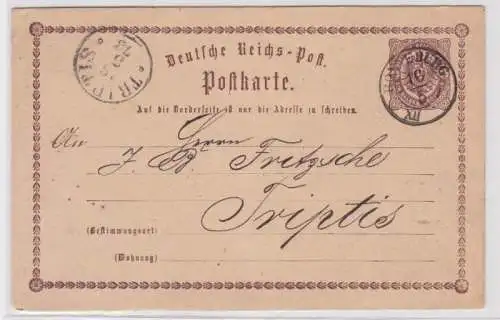 Deutsche Reichs-Post.
Postkarte.
Auf die Vorderseite ist nur die Adresse zu schreiben.
TRIPTIS
An
Herrn
J. B. Fritzsche
Triptis
(Bestimmungsort)
(Wohnung)